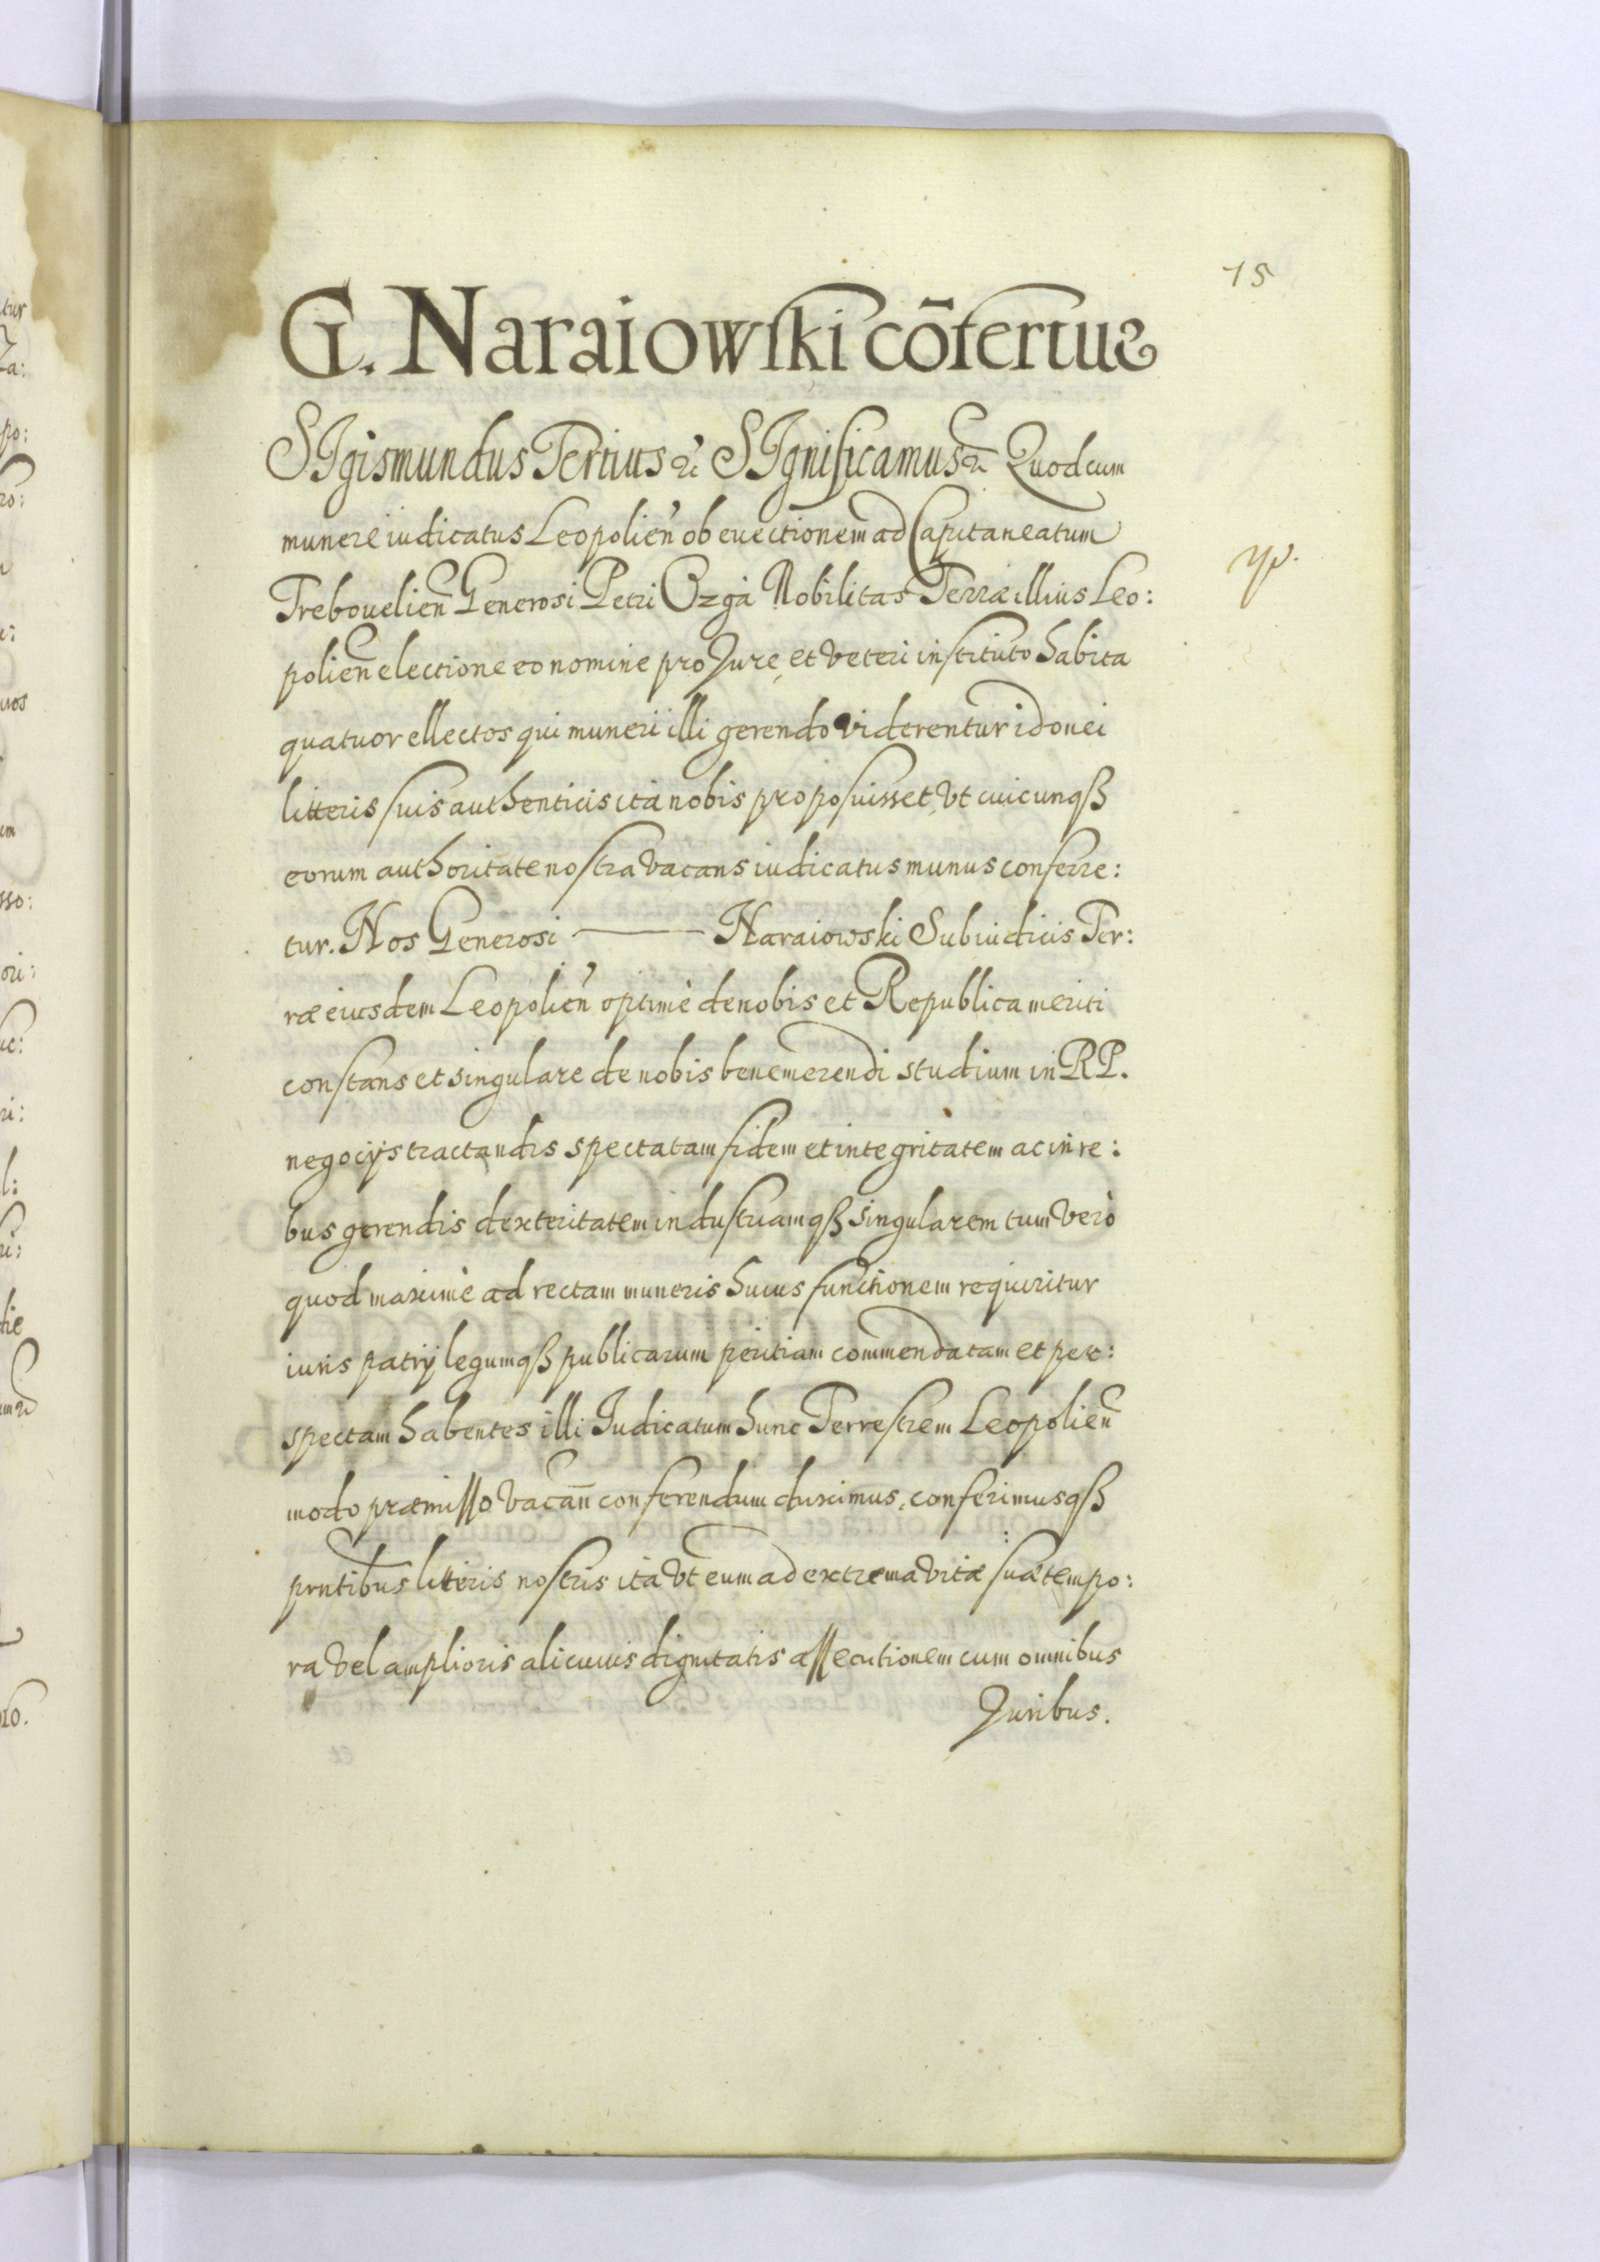 15
G. Naraiowski cõfertur
SIgismundus Tertius &c SIgnificamus &c Quod cum
munere iudicatus Leopolien̄ ob euectionem ad Capitaneatum
Trebouelien̄ Generosi Petri Ozga Nobilitas Terræ illius Leo:
polien̄ electione eo nomine pro Jure et veteri instituto habita
quatuor ellectos qui muneri illi gerendo viderentur idonei
litteris suis authenticis ità nobis proposuisset, vt cuicunqꝫ
eorum authoritate nostra vacans iudicatus munus conferre:
tur. Nos Generosi ——— Naraiowski Subiudicis Ter:
ræ eiusdem Leopolien̄ optimè de nobis et Republica meriti
constans et singulare de nobis benemerendi studium in RP.
negocijs tractandis spectatam fidem et integritatem ac in re:
bus gerendis dexteritatem industriamqꝫ singularem tum verò
quod maximè ad rectam muneris huius functionem requiritur
iuris patrij legumqꝫ publicarum peritiam commendatam et per:
spectam habentes illi Iudicatum hunc Terrestrem Leopolien̄
modo præmisso vacan̄ conferendum duximus, conferimusqꝫ
pr̄ntibus litteris nostris ità vt eum ad extrema vitæ suæ tempo:
ra vel amplioris alicuius dignitatis assecutionem cum omnibus
Juribus.